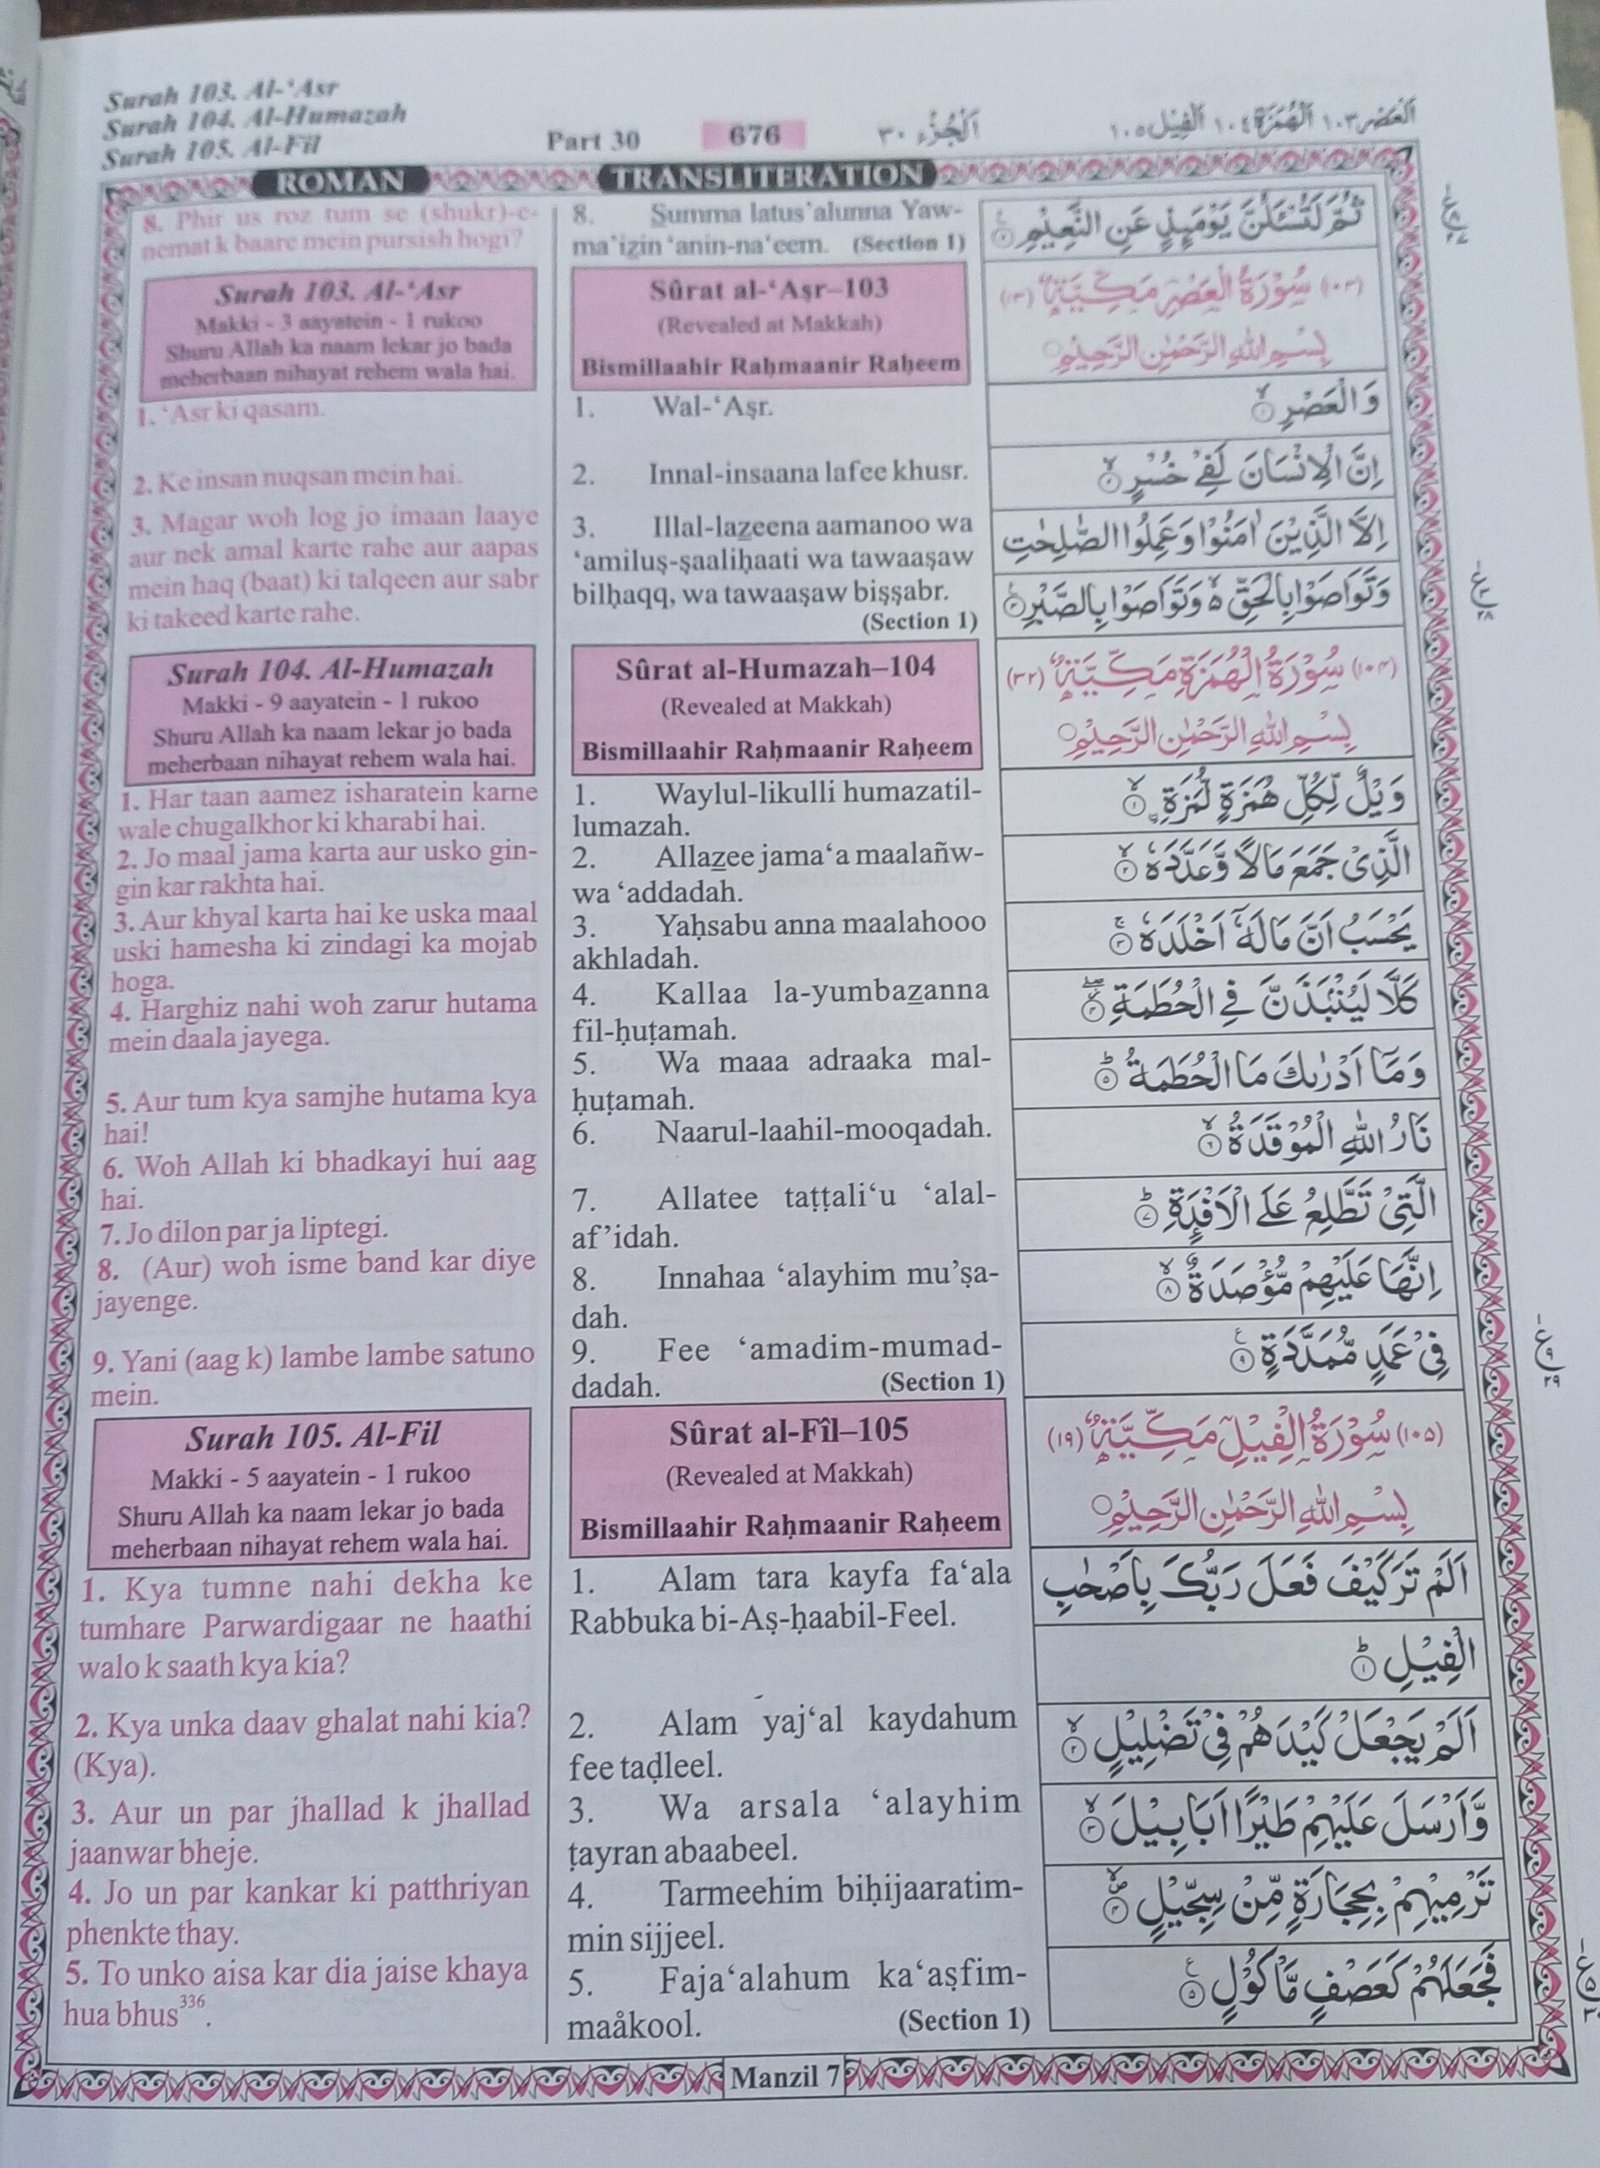 Surah 103. Al-‘Asr
Surah 104. Al-Humazah
Surah 105. Al-Fil
Part 30
676
اَلْجُزْء ٣٠
اَلْعَصْر ١٠٣ اَلْهُمَزَة ١٠٤ اَلْفِيْل ١٠٥
ROMAN
TRANSLITERATION
8. Phir us roz tum se (shukr)-e-
nemat k baare mein pursish hogi?
Surah 103. Al-‘Asr
Makki - 3 aayatein - 1 rukoo
Shuru Allah ka naam lekar jo bada
meherbaan nihayat rehem wala hai.
1. ‘Asr ki qasam.
2. Ke insan nuqsan mein hai.
3. Magar woh log jo imaan laaye
aur nek amal karte rahe aur aapas
mein haq (baat) ki talqeen aur sabr
ki takeed karte rahe.
Surah 104. Al-Humazah
Makki - 9 aayatein - 1 rukoo
Shuru Allah ka naam lekar jo bada
meherbaan nihayat rehem wala hai.
1. Har taan aamez isharatein karne
wale chugalkhor ki kharabi hai.
2. Jo maal jama karta aur usko gin-
gin kar rakhta hai.
3. Aur khyal karta hai ke uska maal
uski hamesha ki zindagi ka mojab
hoga.
4. Harghiz nahi woh zarur hutama
mein daala jayega.
5. Aur tum kya samjhe hutama kya
hai!
6. Woh Allah ki bhadkayi hui aag
hai.
7. Jo dilon par ja liptegi.
8. (Aur) woh isme band kar diye
jayenge.
9. Yani (aag k) lambe lambe satuno
mein.
Surah 105. Al-Fil
Makki - 5 aayatein - 1 rukoo
Shuru Allah ka naam lekar jo bada
meherbaan nihayat rehem wala hai.
1. Kya tumne nahi dekha ke
tumhare Parwardigaar ne haathi
walo k saath kya kia?
2. Kya unka daav ghalat nahi kia?
(Kya).
3. Aur un par jhallad k jhallad
jaanwar bheje.
4. Jo un par kankar ki patthriyan
phenkte thay.
5. To unko aisa kar dia jaise khaya
hua bhus³³⁶.
8. S̲umma latus’alunna Yaw-
ma’iz̲in ‘anin-na‘eem. (Section 1)
Sûrat al-‘Aṣr–103
(Revealed at Makkah)
Bismillaahir Raḥmaanir Raḥeem
1. Wal-‘Aṣr.
2. Innal-insaana lafee khusr.
3. Illal-laz̲eena aamanoo wa
‘amiluṣ-ṣaaliḥaati wa tawaaṣaw
bilḥaqq, wa tawaaṣaw biṣṣabr.
(Section 1)
Sûrat al-Humazah–104
(Revealed at Makkah)
Bismillaahir Raḥmaanir Raḥeem
1. Waylul-likulli humazatil-
lumazah.
2. Allaz̲ee jama‘a maalañw-
wa ‘addadah.
3. Yaḥsabu anna maalahooo
akhladah.
4. Kallaa la-yumbaz̲anna
fil-ḥuṭamah.
5. Wa maaa adraaka mal-
ḥuṭamah.
6. Naarul-laahil-mooqadah.
7. Allatee taṭṭali‘u ‘alal-
af’idah.
8. Innahaa ‘alayhim mu’ṣa-
dah.
9. Fee ‘amadim-mumad-
dadah. (Section 1)
Sûrat al-Fîl–105
(Revealed at Makkah)
Bismillaahir Raḥmaanir Raḥeem
1. Alam tara kayfa fa‘ala
Rabbuka bi-Aṣ-ḥaabil-Feel.
2. Alam yaj‘al kaydahum
fee taḍleel.
3. Wa arsala ‘alayhim
ṭayran abaabeel.
4. Tarmeehim biḥijaaratim-
min sijjeel.
5. Faja‘alahum ka‘aṣfim-
maåkool. (Section 1)
ثُمَّ لَتُسْـَٔلُنَّ يَوْمَىِٕذٍ عَنِ النَّعِيْمِ ۝٨
(١٠٣) سُوْرَةُ الْعَصْرِ مَكِّيَّةٌ (١٣)
بِسْمِ اللّٰهِ الرَّحْمٰنِ الرَّحِيْمِ
وَالْعَصْرِ ۝١
اِنَّ الْاِنْسَانَ لَفِيْ خُسْرٍ ۝٢
اِلَّا الَّذِيْنَ اٰمَنُوْا وَعَمِلُوا الصّٰلِحٰتِ
وَتَوَاصَوْا بِالْحَقِّ ۙ۬ وَتَوَاصَوْا بِالصَّبْرِ ۝٣
(١٠٤) سُوْرَةُ الْهُمَزَةِ مَكِّيَّةٌ (٣٢)
بِسْمِ اللّٰهِ الرَّحْمٰنِ الرَّحِيْمِ
وَيْلٌ لِّكُلِّ هُمَزَةٍ لُّمَزَةِ ۝١
الَّذِيْ جَمَعَ مَالًا وَّعَدَّدَهٗ ۝٢
يَحْسَبُ اَنَّ مَالَهٗۤ اَخْلَدَهٗ ۝٣
كَلَّا لَيُنْۢبَذَنَّ فِي الْحُطَمَةِ ۝٤
وَمَاۤ اَدْرٰىكَ مَا الْحُطَمَةُ ۝٥
نَارُ اللّٰهِ الْمُوْقَدَةُ ۝٦
الَّتِيْ تَطَّلِعُ عَلَى الْاَفْـِٕدَةِ ۝٧
اِنَّهَا عَلَيْهِمْ مُّؤْصَدَةٌ ۝٨
فِيْ عَمَدٍ مُّمَدَّدَةٍ ۝٩
(١٠٥) سُوْرَةُ الْفِيْلِ مَكِّيَّةٌ (١٩)
بِسْمِ اللّٰهِ الرَّحْمٰنِ الرَّحِيْمِ
اَلَمْ تَرَ كَيْفَ فَعَلَ رَبُّكَ بِاَصْحٰبِ
الْفِيْلِ ۝١
اَلَمْ يَجْعَلْ كَيْدَهُمْ فِيْ تَضْلِيْلٍ ۝٢
وَّاَرْسَلَ عَلَيْهِمْ طَيْرًا اَبَابِيْلَ ۝٣
تَرْمِيْهِمْ بِحِجَارَةٍ مِّنْ سِجِّيْلٍ ۝٤
فَجَعَلَهُمْ كَعَصْفٍ مَّاْكُوْلٍ ۝٥
Manzil 7